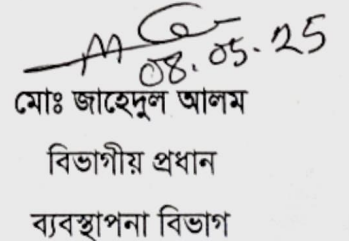 08.05.25
মোঃ জাহেদুল আলম
বিভাগীয় প্রধান
ব্যবস্থাপনা বিভাগ